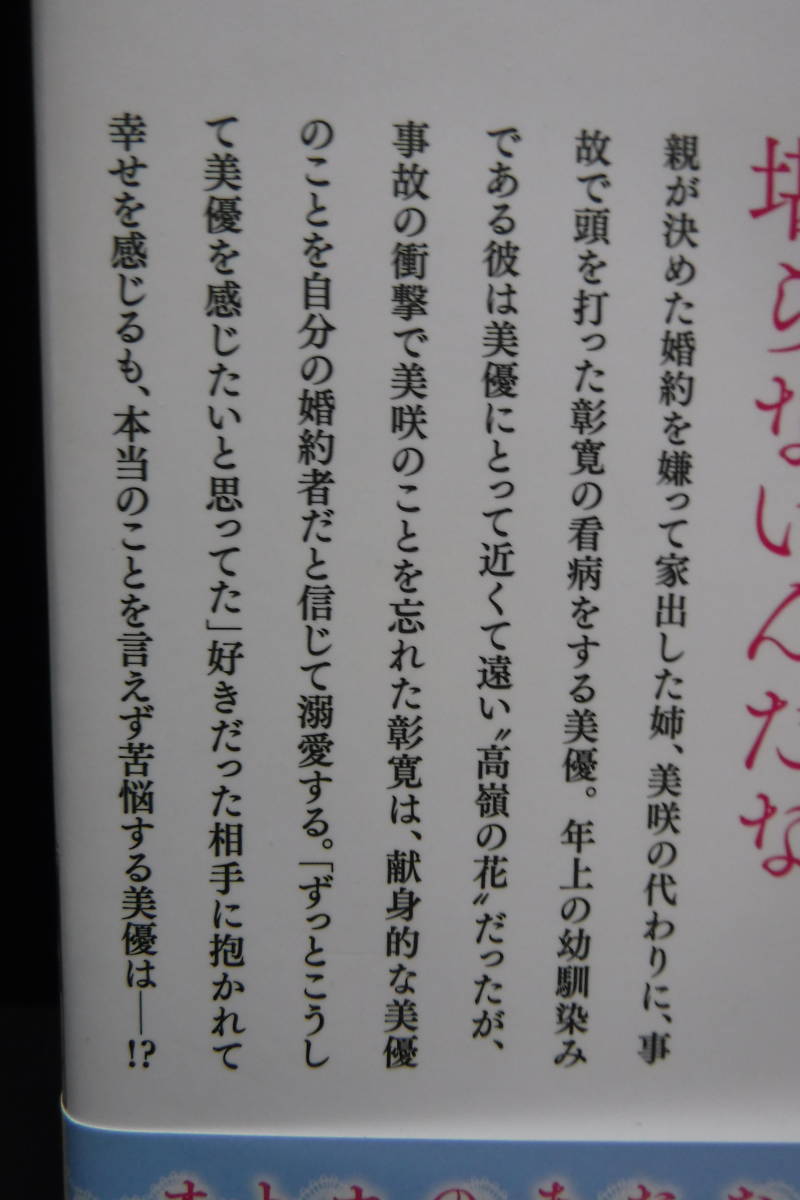 堪らないんだな
親が決めた婚約を嫌って家出した姉、美咲の代わりに、事
故で頭を打った彰寛の看病をする美優。年上の幼馴染み
である彼は美優にとって近くて遠い〝高嶺の花〟だったが、
事故の衝撃で美咲のことを忘れた彰寛は、献身的な美優
のことを自分の婚約者だと信じて溺愛する。「ずっとこうし
て美優を感じたいと思ってた」好きだった相手に抱かれて
幸せを感じるも、本当のことを言えず苦悩する美優は―!?